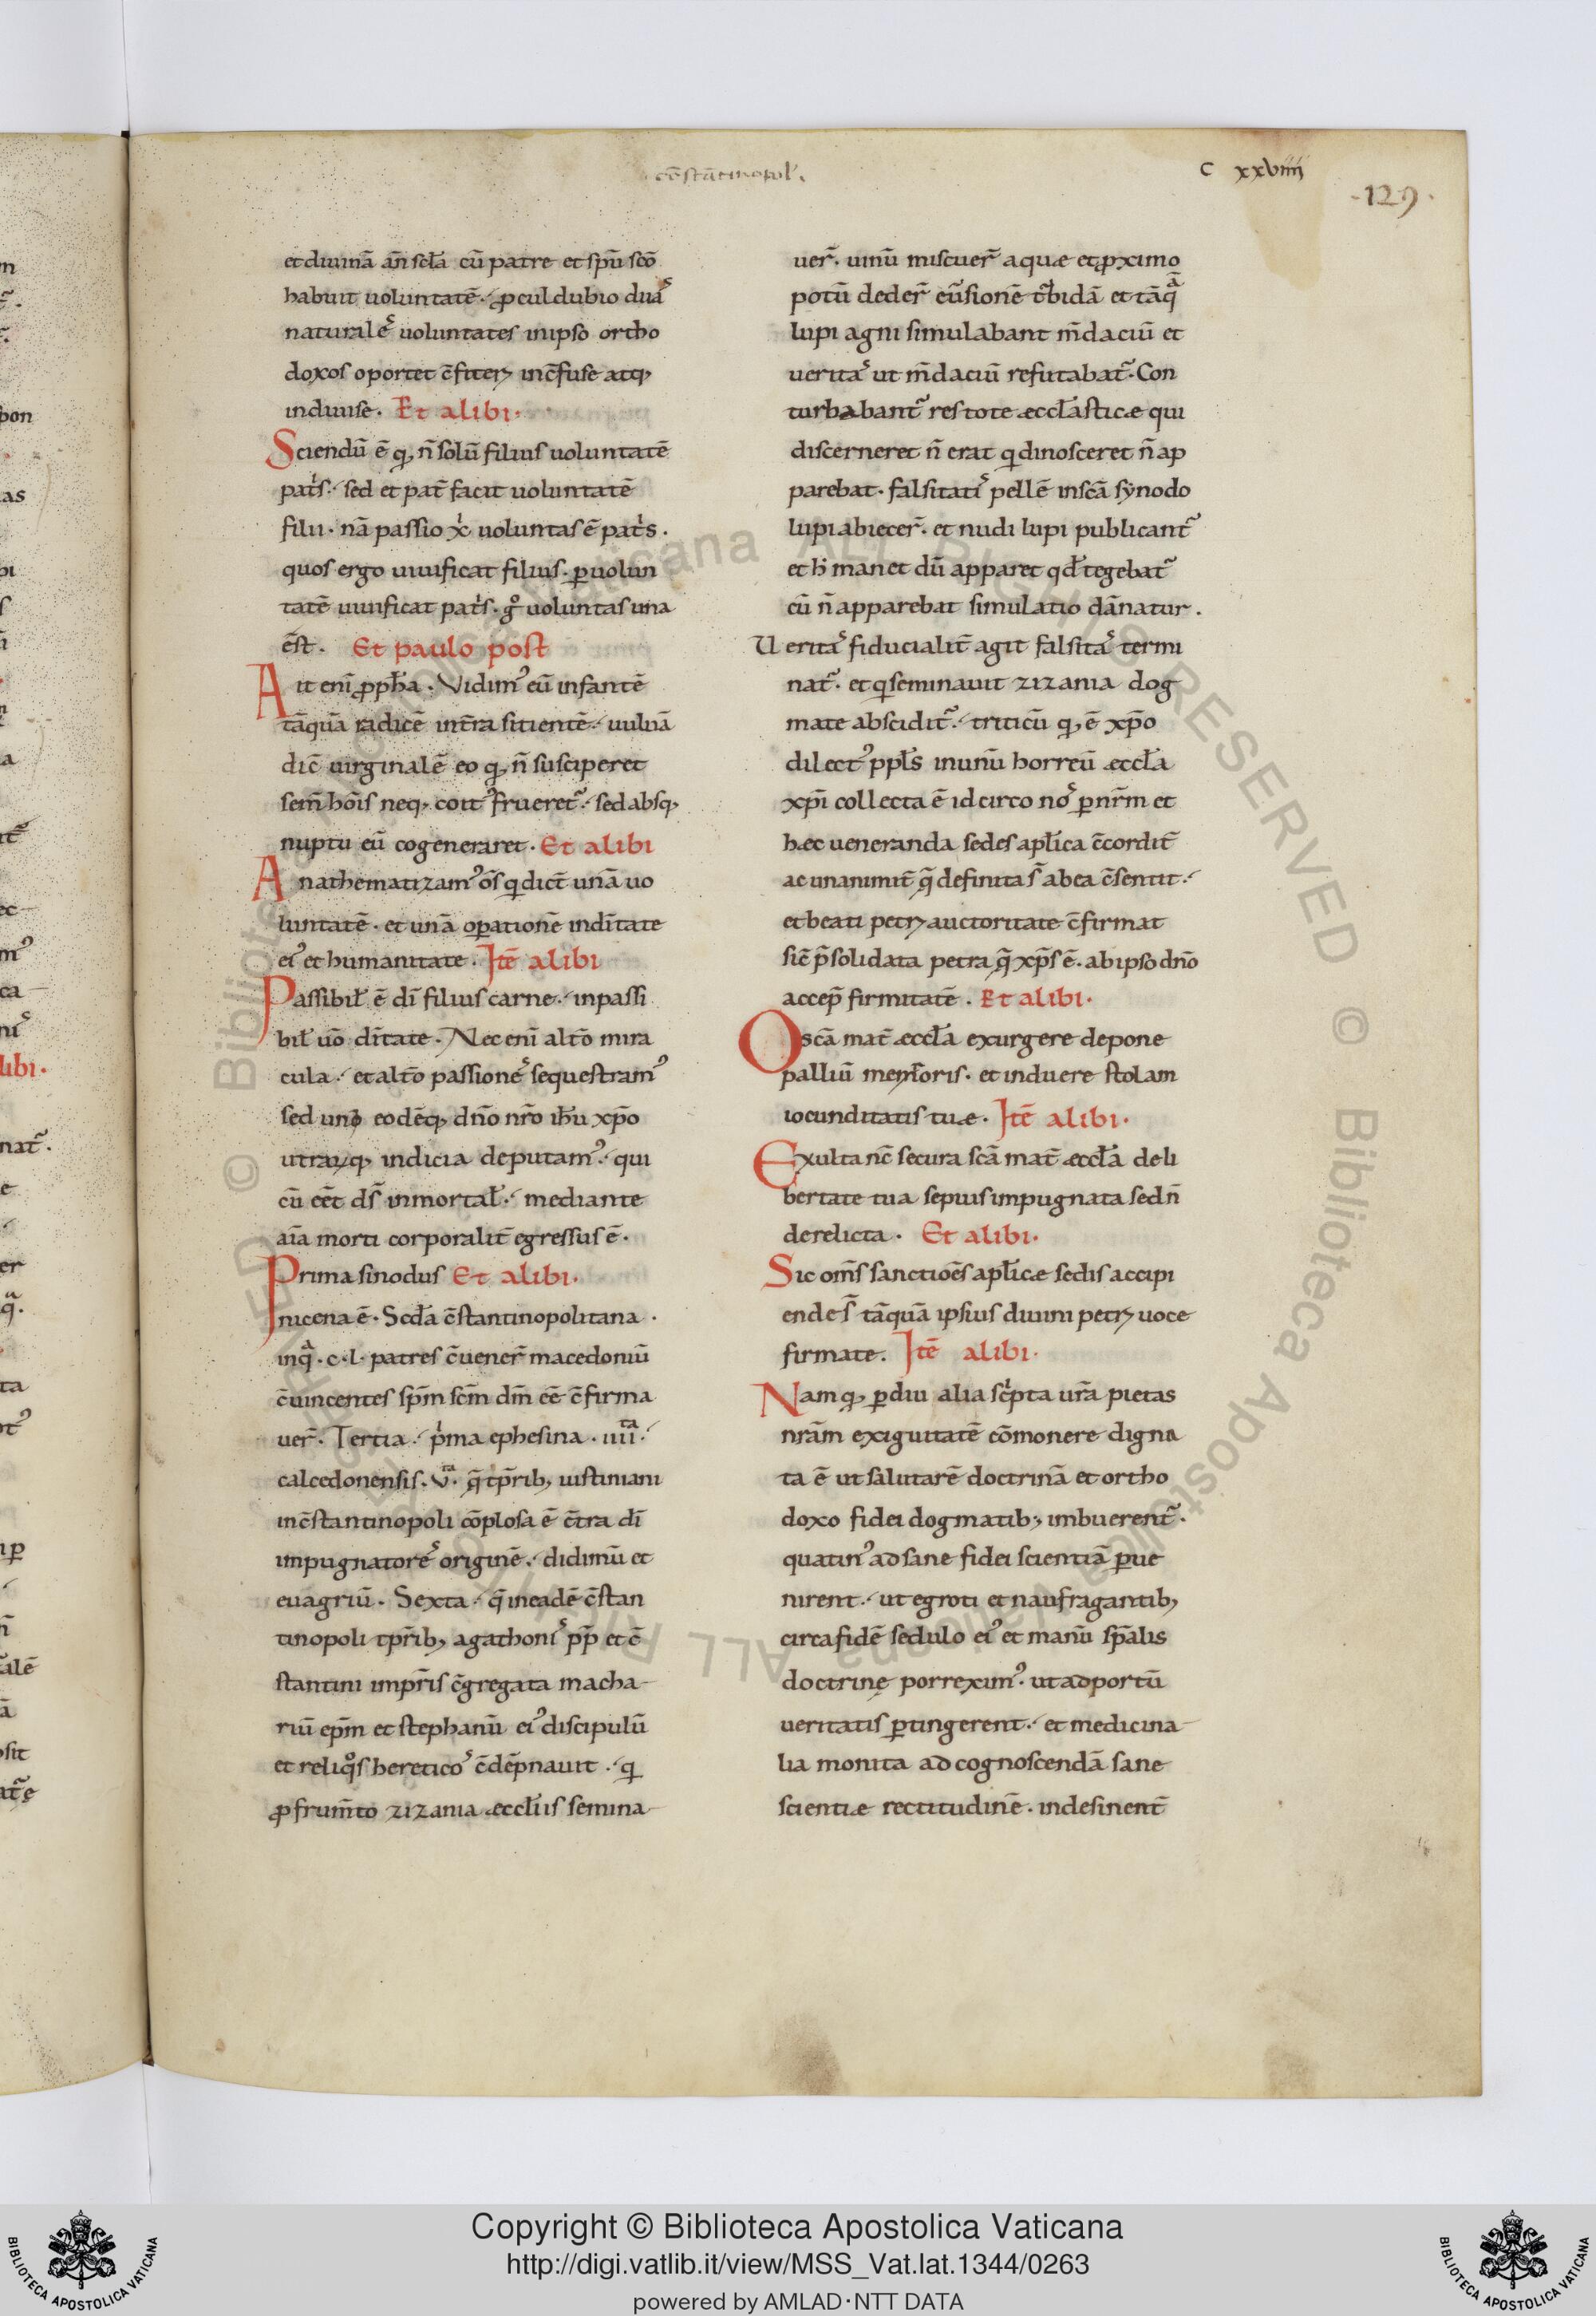 cōstātinopol̕.
C xxviiii
·129·
et diuinā an̄ scl̄a cū patre et spū scō
habuit uoluntatē. procul dubio duaˢ
naturaleˢ uoluntates in ipso ortho
doxos oportet c̄fiteri inc̄fuse atq;
indiuise. Et alibi.
Sciendū ē q; n̄ solū filius uoluntatē
pat̕s. sed et pat̄ facit uoluntatē
filii. nā passio x̕ uoluntas ē pat̕s.
quos ergo uiuificat filius. ꝑ uolun
tatē uiuificat pat̕s. gͦ uoluntas una
ēst. Et paulo post
Ait eni ꝓph̄a. Vidimꝰ eū infantē
tāquā radicē int̄ra sitientē. uuluā
dic̄ uirginalē eo q; n̄ susciperet
sem̄ hoīs neq; coitꝰ frueret̄. sed absq;
nuptu eū cogeneraret. Et alibi
Anathematizamꝰ oīs qui dict̄ unā uo
luntatē. et unā oꝑationē in dītate
eiꝰ et humanitate. Itē alibi
Passibil̕ ē dī filius carne. inpassi
bil̕ uō dītate. Nec enī alt̄o mira
cula. et alt̄o passioneˢ sequestramꝰ
sed uno eodēq; dn̄o nr̄o ih̄u xp̄o
utraꝝq; indicia deputamꝰ. qui
cū eēt ds̄ inmortal̕. mediante
aīa morti corporalit̄ egressus ē.
Prima sinodus Et alibi.
nicena ē. Scd̄a c̄stantinopolitana.
in qͣ. c.l. patres c̄uener̄ macedoniū
c̄uincentes spm̄ scm̄ dm̄ eē c̄firma
uer̄. Tertia. p̕ma ephesina. iiiiᵗᵃ.
calcedonensis. vᵗᵃ. q̄ tp̄rib; iustiniani
in c̄stantinopoli cōplosa ē c̄tra dī
impugnatoreˢ originē. didimū et
euagriū. Sexta. q̄ in eadē c̄stan
tinopoli tp̄rib; agathoniˢ pp̄ et c̄
stantini impr̄is c̄gregata macha
riū ep̄m et stephanū eiꝰ discipulū
et reliqͦs hereticoˢ c̄dēpnauit. qui
ꝓ frum̄to zizania æccl̄iis semina
uer̄. uinū miscuer̄ aquæ et ꝓximo
potū deder̄ eūsionē t̕bidā et tāqͣ̄
lupi agni simulabant m̄daciū et
ueritaˢ ut m̄daciū refutabat̄. Con
turbabant̄ res tote æccl̄asticæ qui
discerneret n̄ erat qui dinosceret n̄ ap
parebat. falsitatiˢ pellē in scā synodo
lupi abiecer̄. et nudi lupi publicant̄
et h̕ manet dū apparet qd̄ tegebat̄
cū n̄ apparebat simulatio dānatur.
Veritaˢ fiducialit̄ agit falsitaˢ termi
nat̄. et qui seminauit zizania dog
mate abscidit̄. triticū q; ē xp̄o
dilectꝰ ppl̄s in unū horreū æccl̄a
xp̄i collecta ē idcirco noˢ ꝑ nr̄m et
hæc ueneranda sedes apl̄ica c̄cordit̄
ac unanimit̄ q̄ definita s̄ ab ea c̄sentit.
et beati petri auctoritate c̄firmat
sic̄ p̄ solidata petra q̄ xp̄s ē. ab ipso dn̄o
accep̄ firmitatē. Et alibi.
O scā mat̄ æccl̄a exurgere depone
palliū memōris. et induere stolam
iocunditatis tuæ. Itē alibi.
Exulta nc̄ secura scā mat̄ æccl̄a de li
bertate tua sepius impugnata sed n̄
derelicta. Et alibi.
Sic om̄s sanctiōes apl̄icæ sedis accipi
ende s̄ tāquā ipsius diuini petri uoce
firmate. Itē alibi.
Namq; ꝑ diu alia sc̕pta ur̄a pietas
nr̄am exiguitatē cōmonere digna
ta ē ut salutarē doctrinā et ortho
doxo fidei dogmatib; imbuerent̄.
quatinꝰ ad sane fidei scientiā ꝑue
nirent. ut egroti et naufragantib;
circa fidē sedulo eiꝰ et manū sp̄alis
doctrinę porreximꝰ. ut ad portū
ueritatis ꝑtingerent. et medicina
lia monita ad cognoscendā sane
scientiæ rectitudinē. indesinent̄
Copyright © Biblioteca Apostolica Vaticana
http://digi.vatlib.it/view/MSS_Vat.lat.1344/0263
powered by AMLAD·NTT DATA
BIBLIOTECA APOSTOLICA VATICANA
BIBLIOTECA APOSTOLICA VATICANA